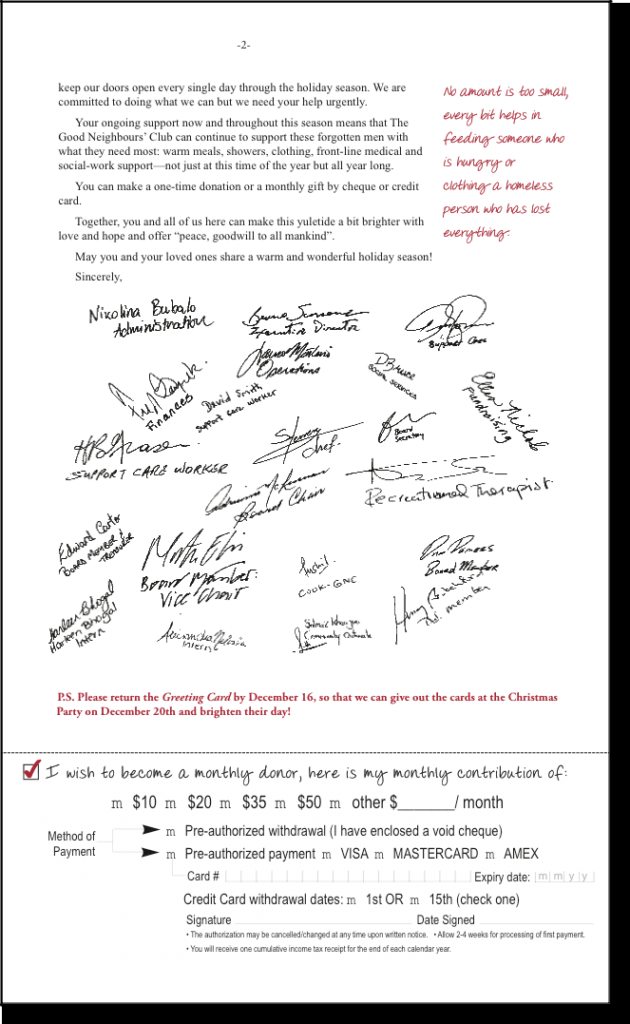 -2-
keep our doors open every single day through the holiday season. We are
committed to doing what we can but we need your help urgently.
Your ongoing support now and throughout this season means that The
Good Neighbours' Club can continue to support these forgotten men with
what they need most: warm meals, showers, clothing, front-line medical and
social-work support—not just at this time of the year but all year long.
You can make a one-time donation or a monthly gift by cheque or credit
card.
Together, you and all of us here can make this yuletide a bit brighter with
love and hope and offer “peace, goodwill to all mankind”.
May you and your loved ones share a warm and wonderful holiday season!
Sincerely,
No amount is too small,
every bit helps in
feeding someone who
is hungry or
clothing a homeless
person who has lost
everything.
Nixolina Bubalo
Administration
Executive Director
Support Care
Operations
Finances
David Smith
support care worker
Social Services
Ellen Nichols
Fundraising
SUPPORT CARE WORKER
Chef
Board
Secretary
Board Chair
Recreational Therapist
Edward Carter
Board Member &
Treasurer
Board Member:
Vice Chair
COOK-GNC
Board Member
Harleen Bhogal
Harleen Bhogal
Intern
Intern
Community Outreach
Bd. member
P.S. Please return the Greeting Card by December 16, so that we can give out the cards at the Christmas
Party on December 20th and brighten their day!
I wish to become a monthly donor, here is my monthly contribution of:
m $10 m $20 m $35 m $50 m other $______/ month
Method of
Payment
m Pre-authorized withdrawal (I have enclosed a void cheque)
m Pre-authorized payment m VISA m MASTERCARD m AMEX
Card # Expiry date: m m y y
Credit Card withdrawal dates: m 1st OR m 15th (check one)
Signature Date Signed
• The authorization may be cancelled/changed at any time upon written notice. • Allow 2-4 weeks for processing of first payment.
• You will receive one cumulative income tax receipt for the end of each calendar year.